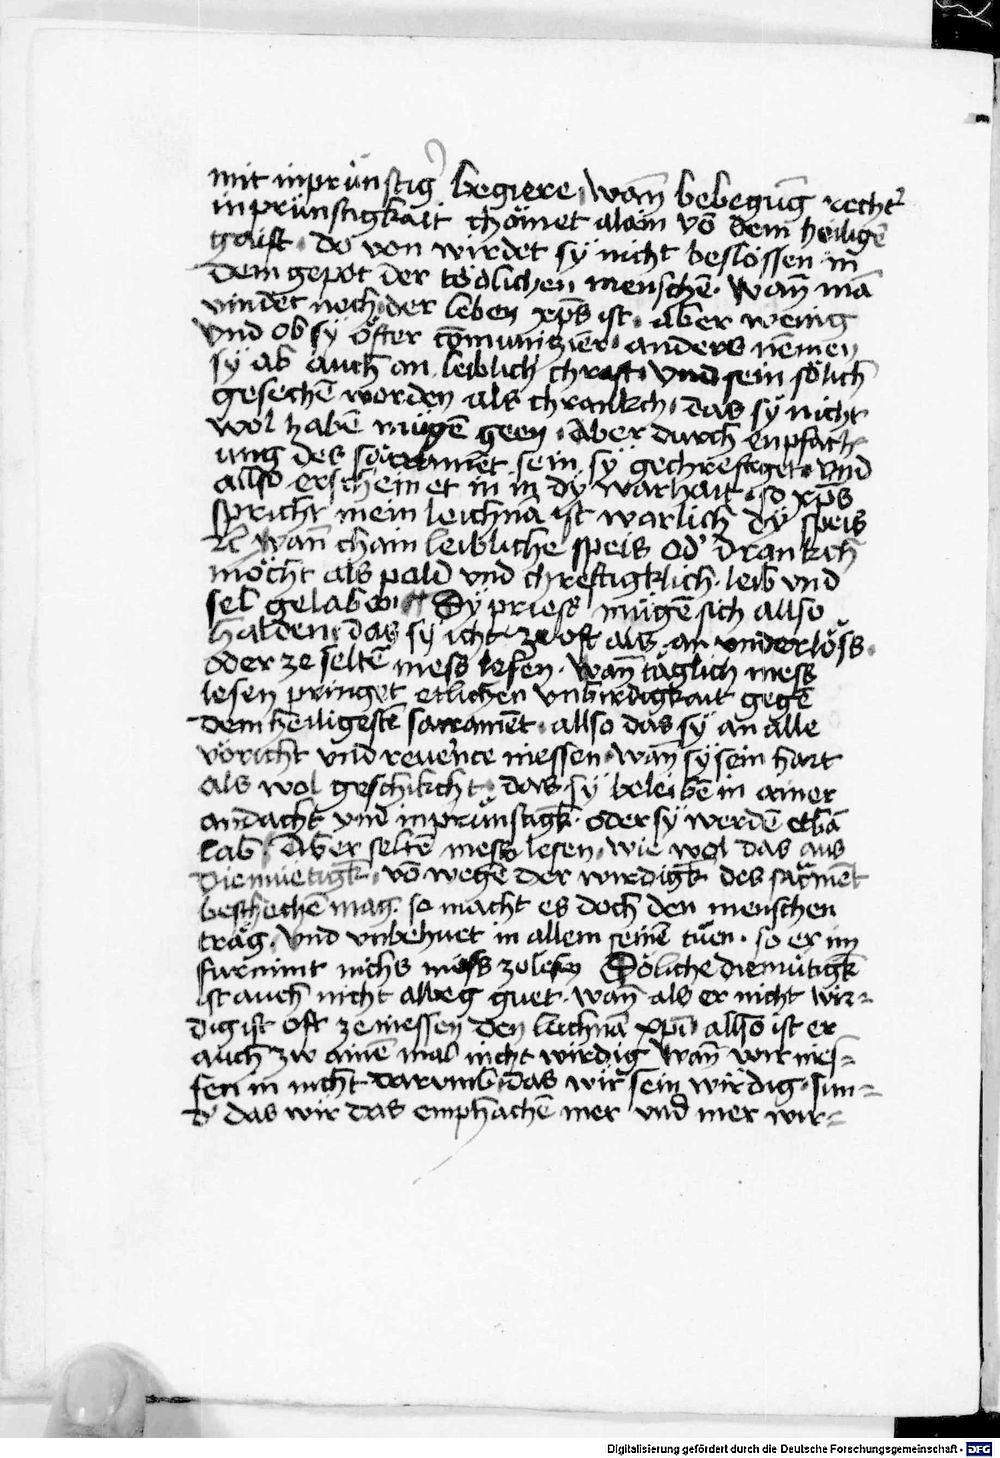 mit inprünstig̉ begiere, wan̄ bebegūg rechtˀ
inprünstigkait chömet alain võ dem heiligē
gaist · do von wirdet sÿ nicht beslossen in
dem gepot der tödlichen menschē · Wan̄ mā
vindet noch der leben xp̄s ist · aber wenig
vnd ob sÿ öfter cōmuniziern · anders nēmen
sÿ ab auch an leiblich chraft · vnd sein sölich
gesechē worden als chrankch · das sÿ nicht
wol habē mügē geen · Aber durch enpfach
ung des sacramēt sein sÿ gechreftiget · vnd
allso erscheinet in in dÿ warhait · so xp̄s
spricht mein leichnā ist warlich dÿ speis
Wan̄ chain leibliche speis od' drankch
möcht als pald vnd chreftigklich · leib vnd
sel gelaben · Dÿ priess mügē sich allso
halden · das sÿ icht ze oft als an underlöss ·
oder ze seltē mess lesen · wan̄ täglich mess
lesen pringet etlichen vnbirdigkait gegē
dem heiligestē sacramēt · allso das sÿ an alle
vöricht vnd reuer̄nce niessen · wan̄ sÿ sein hart
als wol geschikcht · das sÿ beleibē in ainer
andacht vnd inprünstigk̄ · oder sÿ werdē etbā
lab · Aber seltē mess lesen · wie wol das aus
diemüetigk̄ · võ wegē der wirdigk̄ des sacrmēt
beschechē mag · so macht es doch den menschen
träg · vnd vnbehuet in allem seinē tüen · so er im
furnimt nichs mess ze lesen Söliche diemütigk̄
ist auch nicht alweg guet · wan̄ als er nicht wir-
dig ist oft ze niessen den leichnā xp̄i allso ist er
auch zw ainē mal nicht wirdig Wan̄ wir nies-
sen in nicht darumb · das wir sein wirdig · sun-
d' das wir das emphachē mer vnd mer wir-
Digitalisierung gefördert durch die Deutsche Forschungsgemeinschaft - DFG